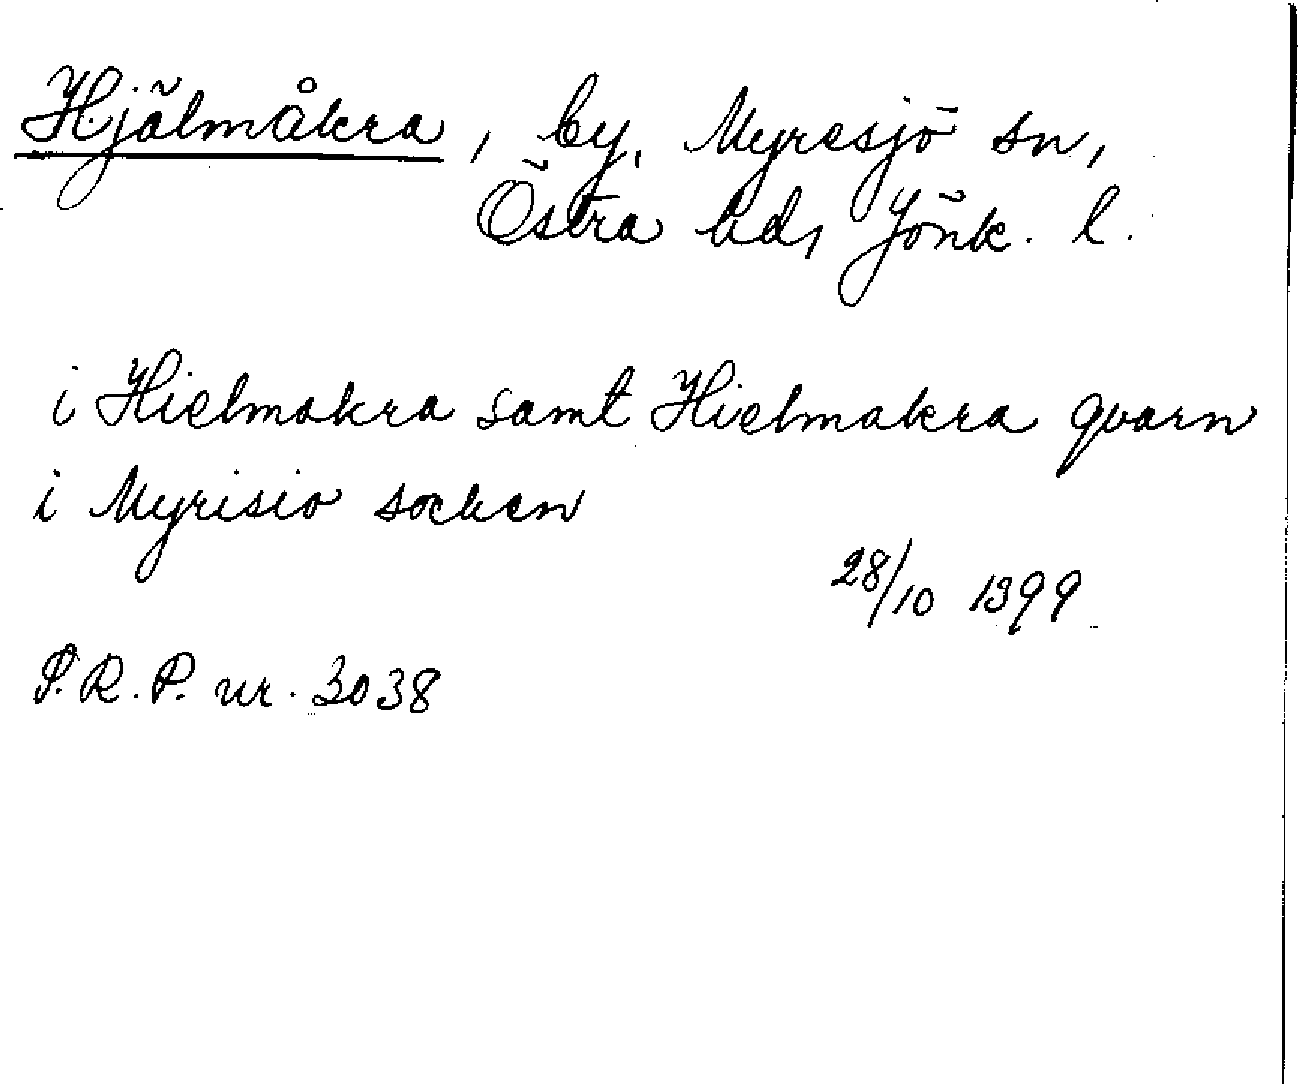 Hjälmåkra, by, Myresjö sn,
Östra hd, Jönk. l.
i Hielmakra samt Hielmakra qvarn
i Myrisio socken
28/10 1399
S.R.P. nr. 3038